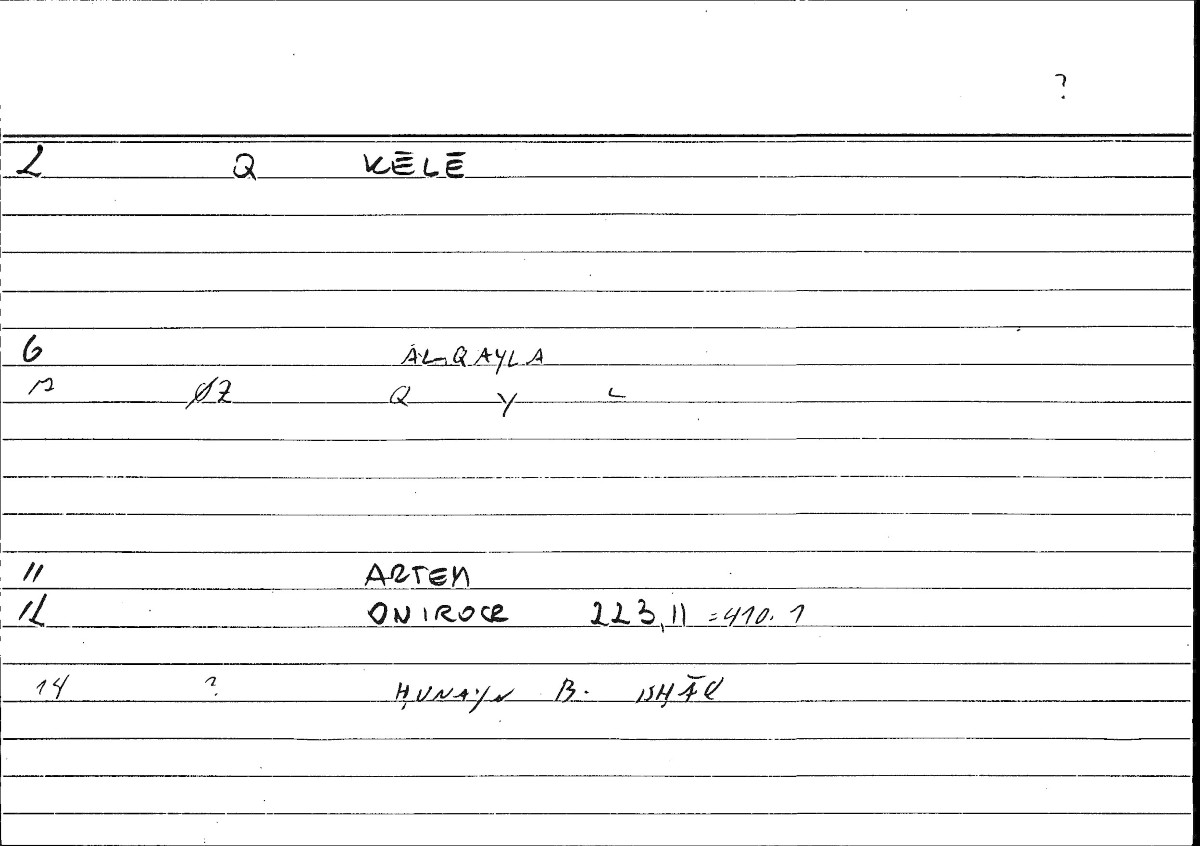 ?
2 Q KĒLĒ
6 ALQAYLA
ØZ Q Y L
11 ARTEM
12 ONIROCR 223,11 =410.1
14 ? ḤUNAYN B. ISḤĀQ